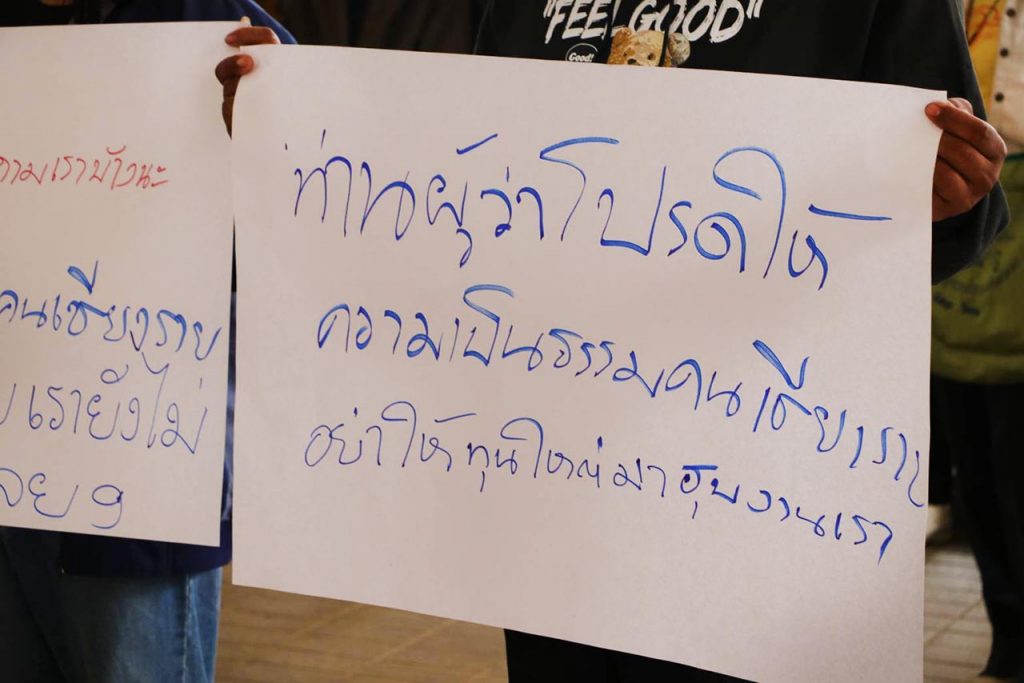 "FEEL GOOD"
Good!
ท่านผู้ว่าโปรดให้
ความเป็นธรรมคนเชียงราย
อย่าให้ทุนใหญ่มาฮุบงานเรา
ถามเราบ้างนะ
คนเชียงราย
เรายังไม่